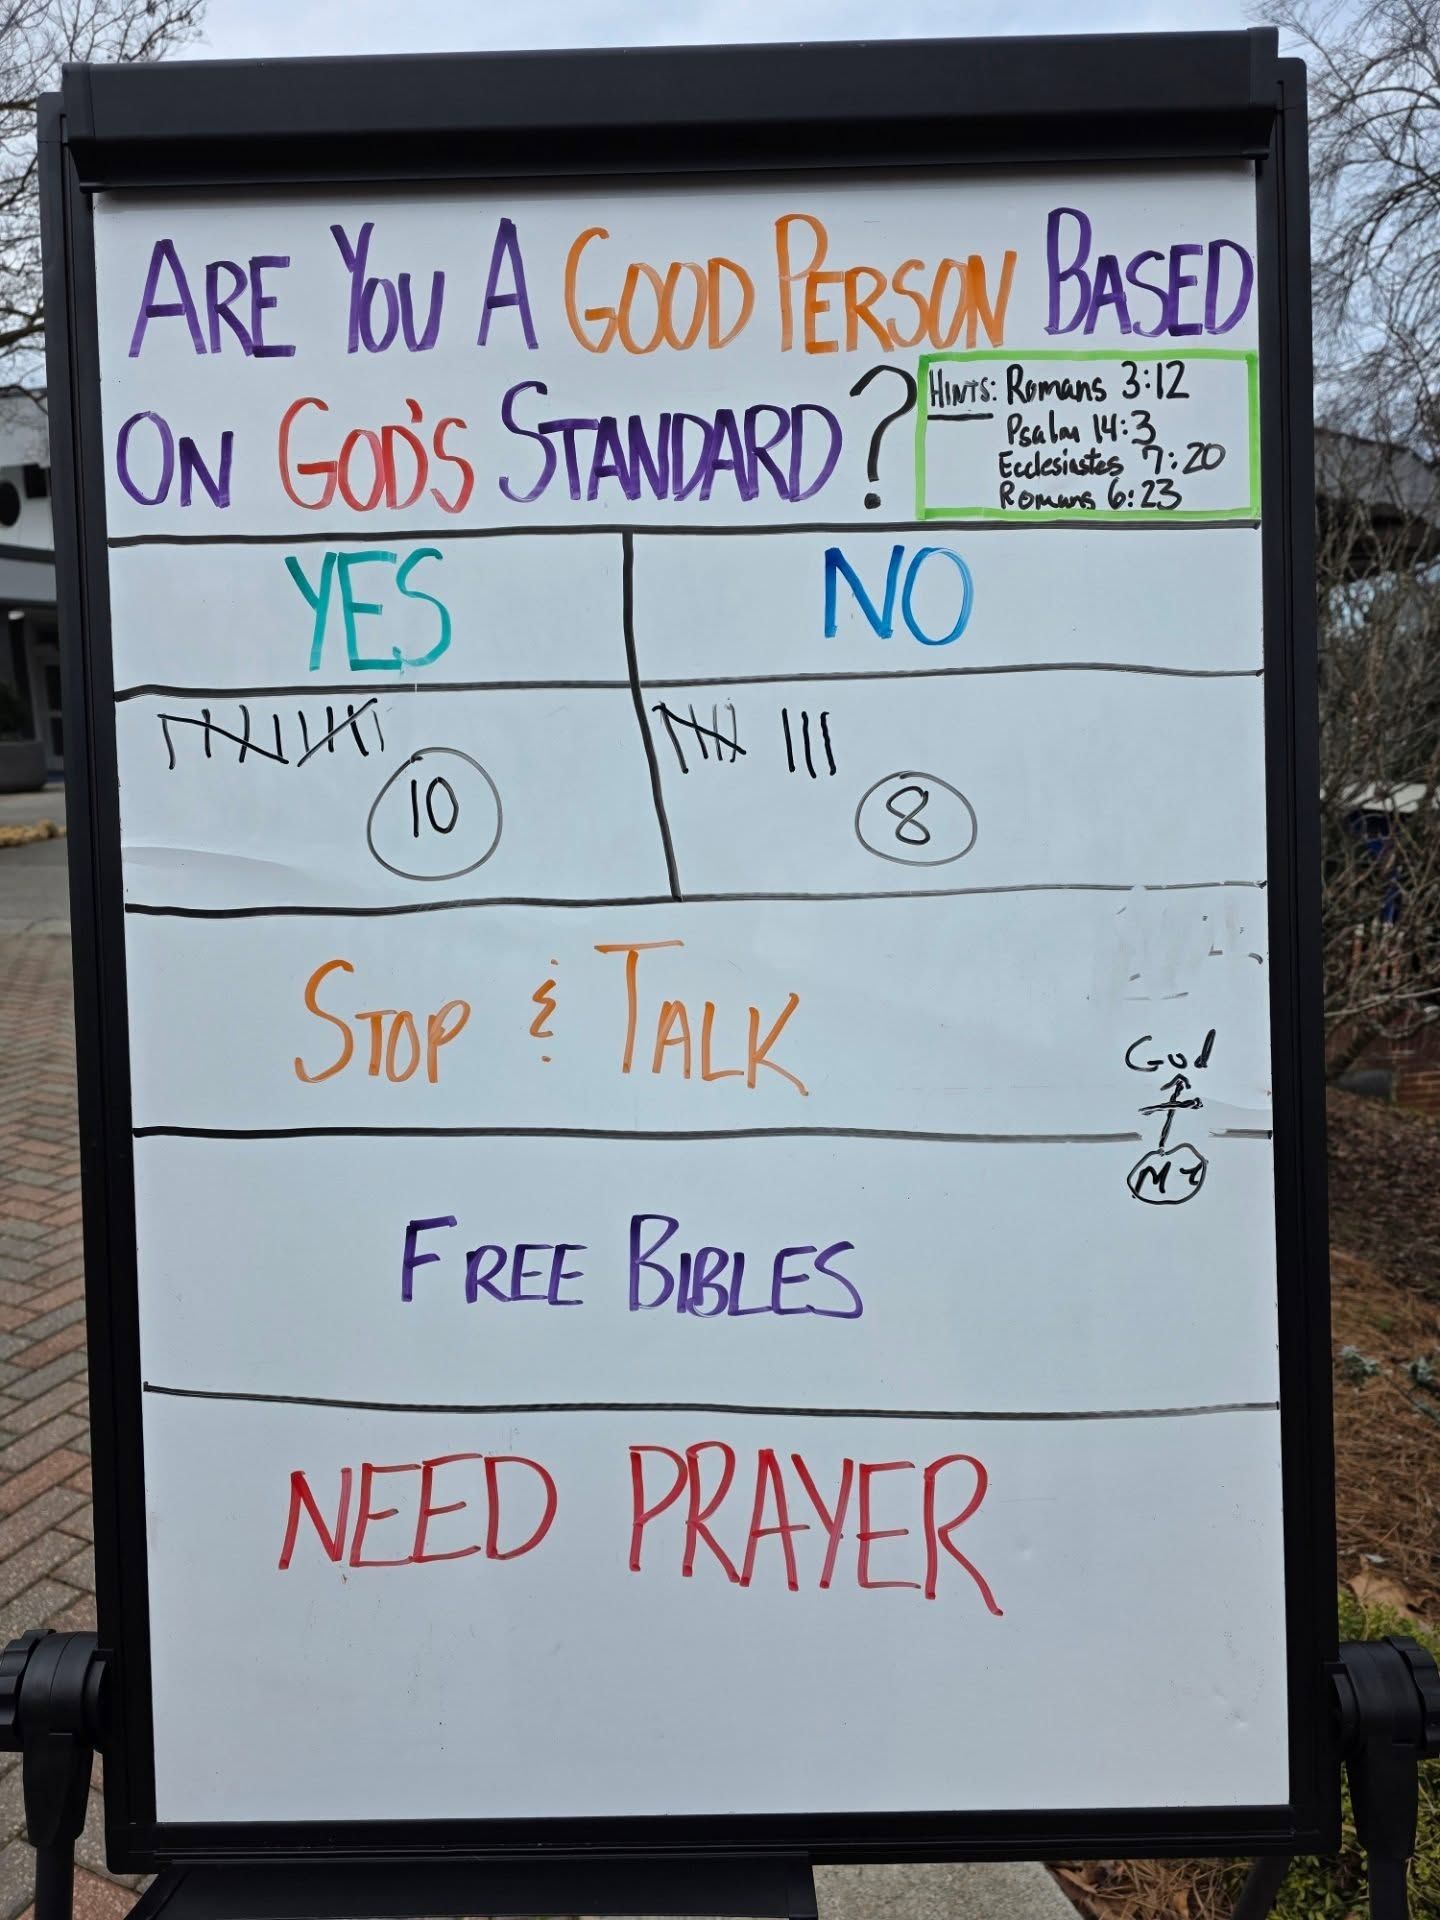 ARE YOU A GOOD PERSON BASED
ON GOD'S STANDARD?
HINTS: Romans 3:12
Psalm 14:3
Ecclesiastes 7:20
Romans 6:23
YES
NO
10
8
STOP & TALK
God
ME
FREE BIBLES
NEED PRAYER